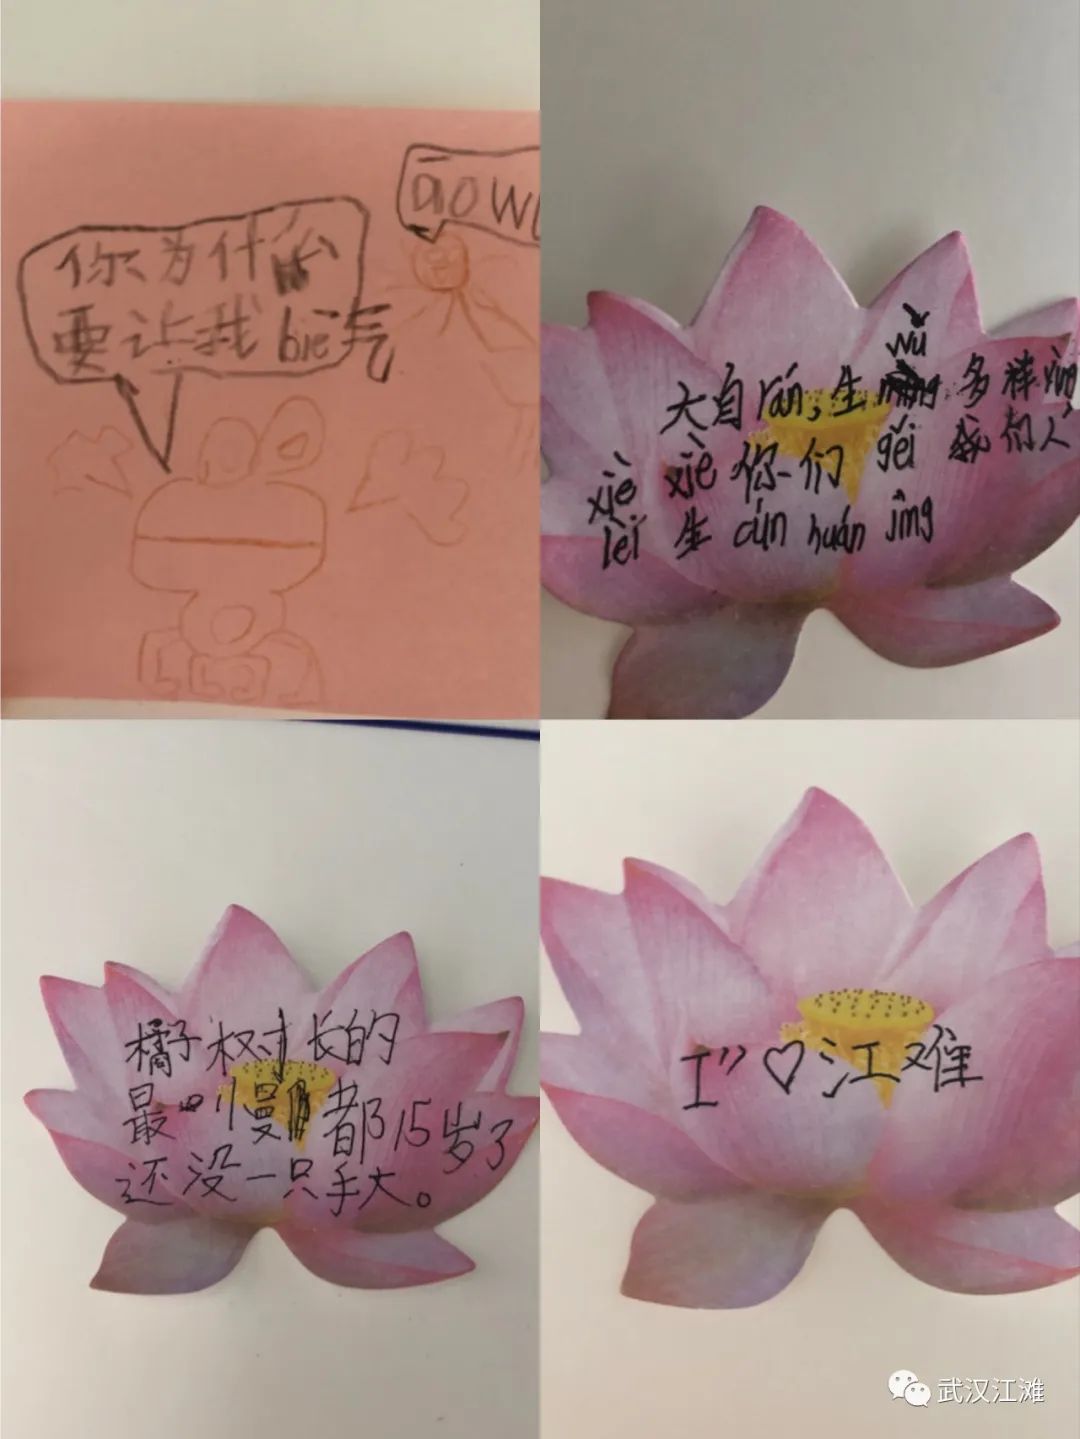 你为什么
要让我biē气
大自rán，生wù多样xìng
xiè xiè你们gěi我们人
lèi生cún huán jìng
橘子树长的
最慢都15岁了
还没一只手大。
I"♡江难
武汉江滩